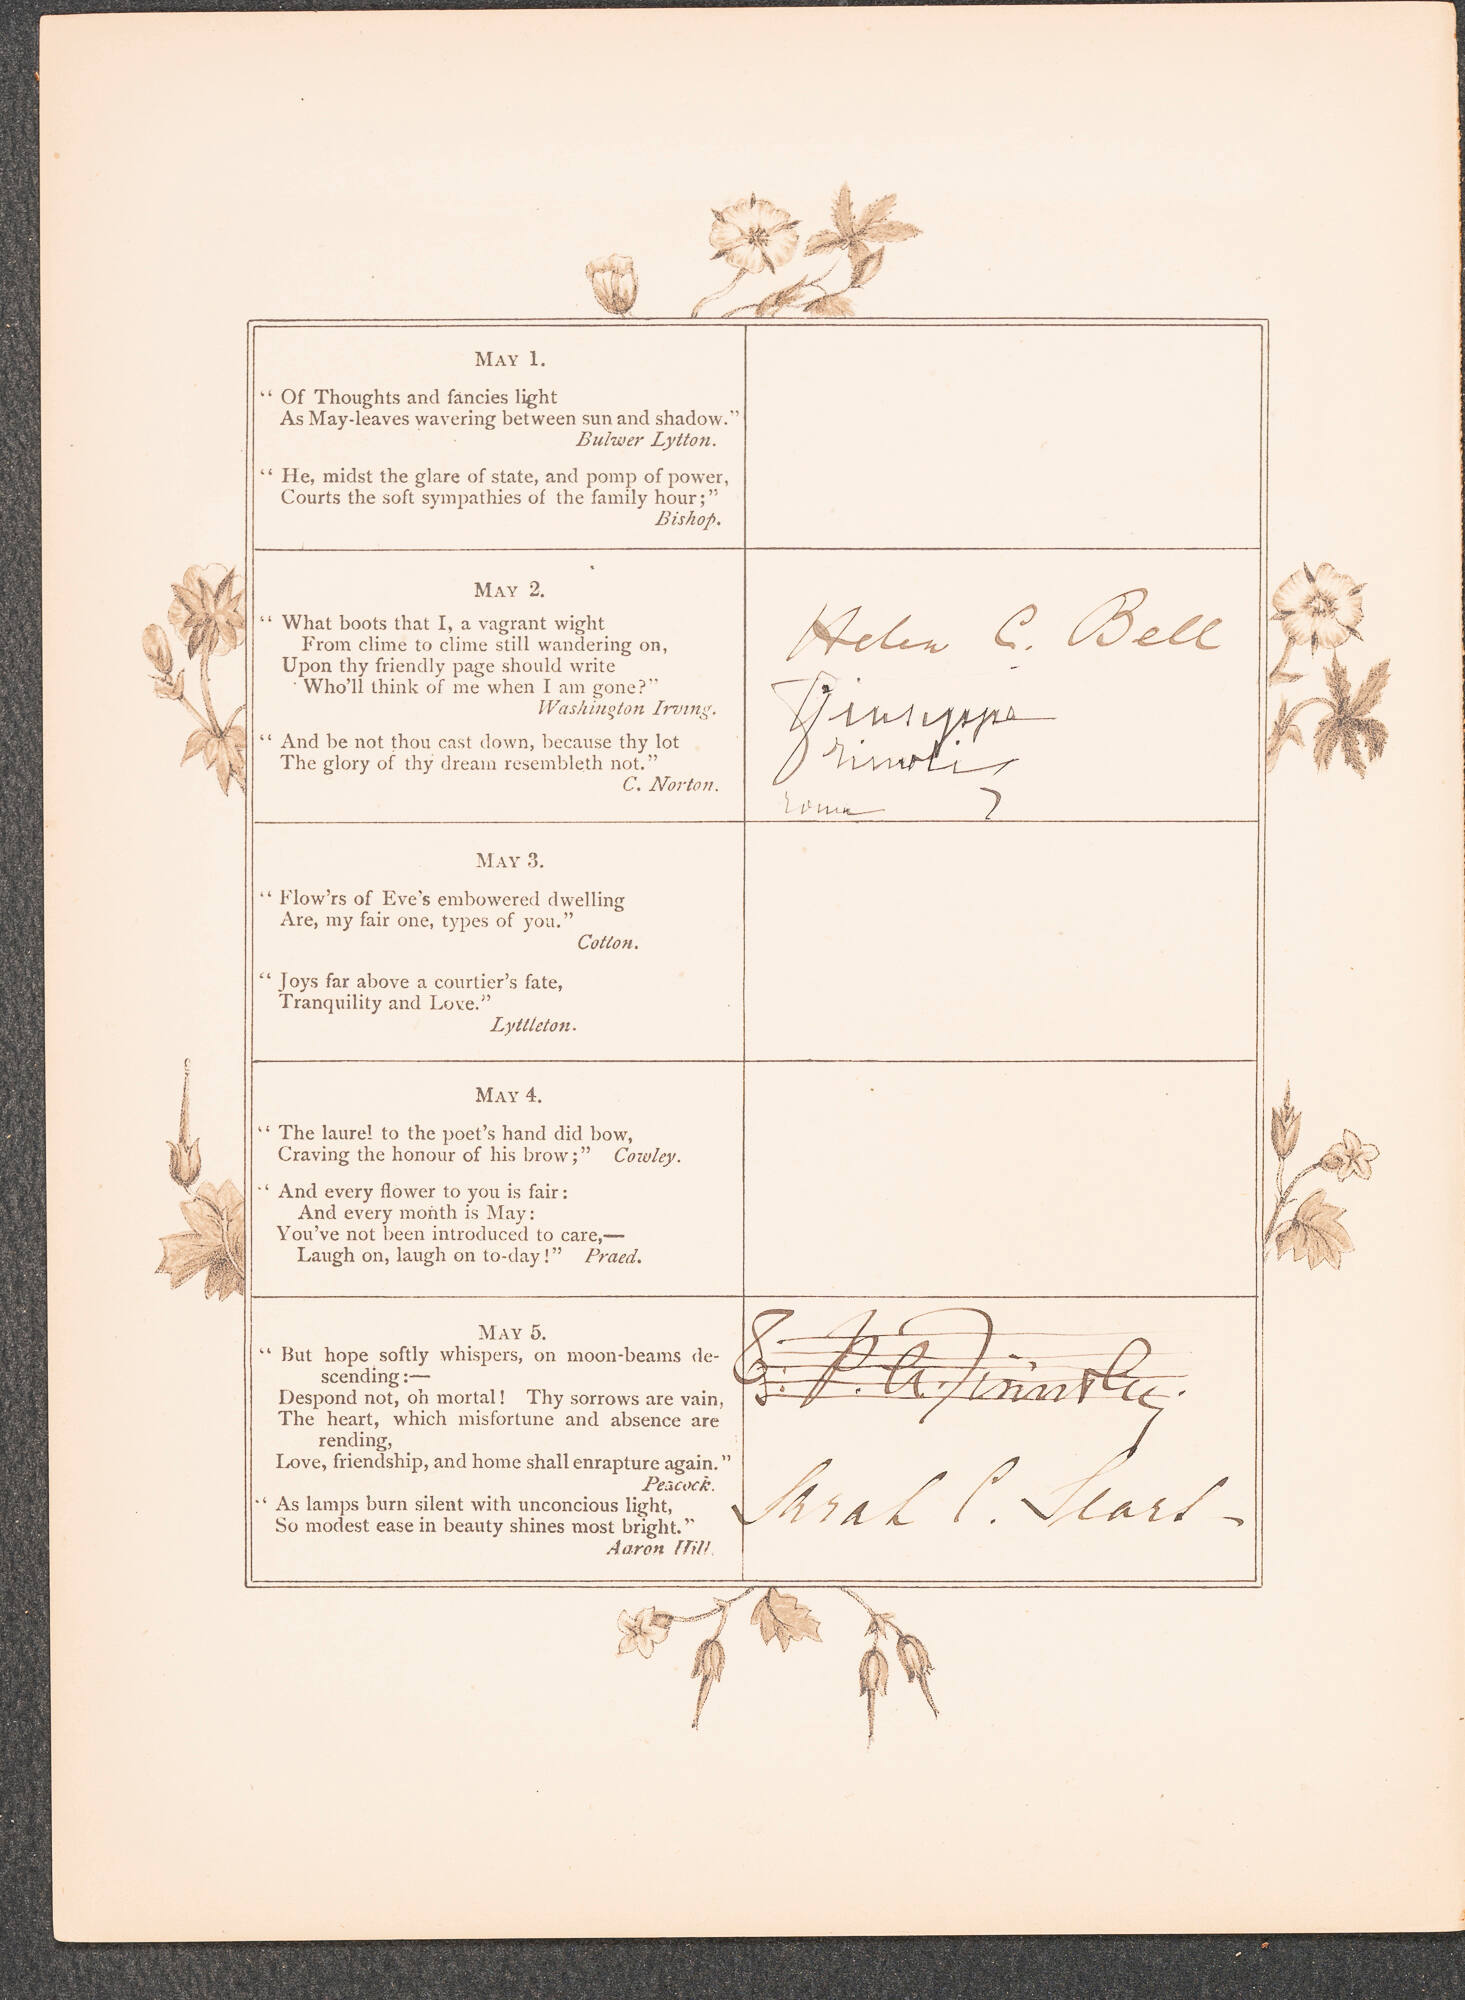 MAY 1.
“ Of Thoughts and fancies light
As May-leaves wavering between sun and shadow.”
Bulwer Lytton.
“ He, midst the glare of state, and pomp of power,
Courts the soft sympathies of the family hour;”
Bishop.
MAY 2.
“ What boots that I, a vagrant wight
From clime to clime still wandering on,
Upon thy friendly page should write
Who'll think of me when I am gone?”
Washington Irving.
“ And be not thou cast down, because thy lot
The glory of thy dream resembleth not.”
C. Norton.
Helen C. Bell
Giuseppe
Roma
MAY 3.
“ Flow'rs of Eve's embowered dwelling
Are, my fair one, types of you.”
Cotton.
“ Joys far above a courtier's fate,
Tranquility and Love.”
Lyttleton.
MAY 4.
“ The laurel to the poet's hand did bow,
Craving the honour of his brow;” Cowley.
“ And every flower to you is fair:
And every month is May:
You've not been introduced to care,—
Laugh on, laugh on to-day!” Praed.
MAY 5.
“ But hope softly whispers, on moon-beams de-
scending:—
Despond not, oh mortal! Thy sorrows are vain,
The heart, which misfortune and absence are
rending,
Love, friendship, and home shall enrapture again.”
Peacock.
“ As lamps burn silent with unconcious light,
So modest ease in beauty shines most bright.”
Aaron Hill.
Sarah C. Sears